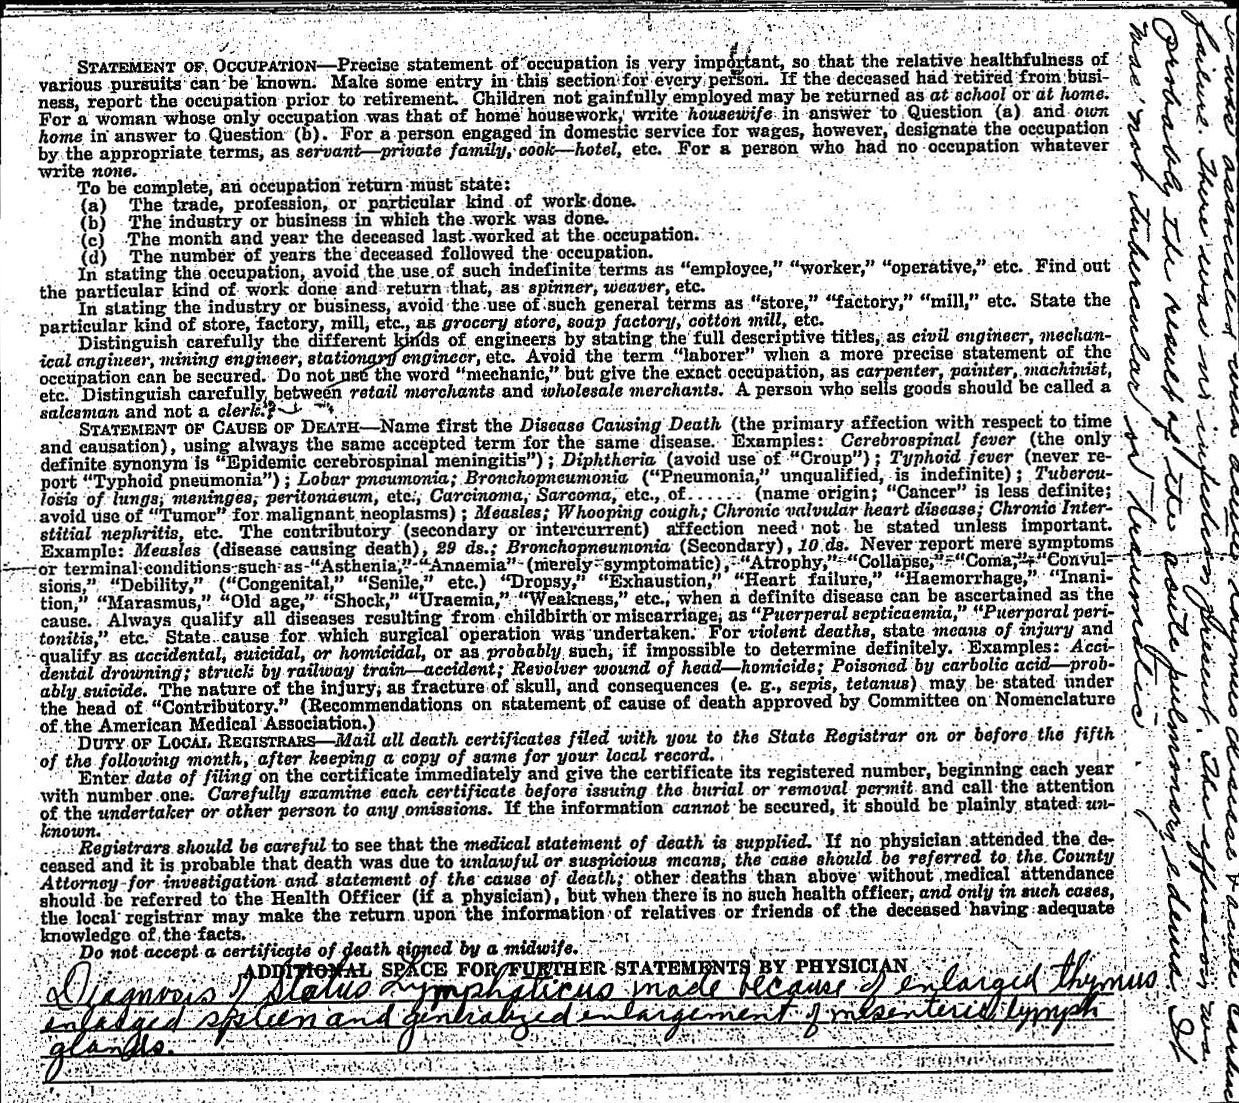 STATEMENT OF OCCUPATION—Precise statement of occupation is very important, so that the relative healthfulness of
various pursuits can be known. Make some entry in this section for every person. If the deceased had retired from busi-
ness, report the occupation prior to retirement. Children not gainfully employed may be returned as at school or at home.
For a woman whose only occupation was that of home housework, write housewife in answer to Question (a) and own
home in answer to Question (b). For a person engaged in domestic service for wages, however, designate the occupation
by the appropriate terms, as servant—private family, cook—hotel, etc. For a person who had no occupation whatever
write none.
To be complete, an occupation return must state:
(a) The trade, profession, or particular kind of work done.
(b) The industry or business in which the work was done.
(c) The month and year the deceased last worked at the occupation.
(d) The number of years the deceased followed the occupation.
In stating the occupation, avoid the use of such indefinite terms as “employee,” “worker,” “operative,” etc. Find out
the particular kind of work done and return that, as spinner, weaver, etc.
In stating the industry or business, avoid the use of such general terms as “store,” “factory,” “mill,” etc. State the
particular kind of store, factory, mill, etc., as grocery store, soap factory, cotton mill, etc.
Distinguish carefully the different kinds of engineers by stating the full descriptive titles, as civil engineer, mechan-
ical engineer, mining engineer, stationary engineer, etc. Avoid the term “laborer” when a more precise statement of the
occupation can be secured. Do not use the word “mechanic,” but give the exact occupation, as carpenter, painter, machinist,
etc. Distinguish carefully between retail merchants and wholesale merchants. A person who sells goods should be called a
salesman and not a clerk.
STATEMENT OF CAUSE OF DEATH—Name first the Disease Causing Death (the primary affection with respect to time
and causation), using always the same accepted term for the same disease. Examples: Cerebrospinal fever (the only
definite synonym is “Epidemic cerebrospinal meningitis”); Diphtheria (avoid use of “Croup”); Typhoid fever (never re-
port “Typhoid pneumonia”); Lobar pneumonia; Bronchopneumonia (“Pneumonia,” unqualified, is indefinite); Tubercu-
losis of lungs, meninges, peritonaeum, etc., Carcinoma, Sarcoma, etc., of...... (name origin; “Cancer” is less definite;
avoid use of “Tumor” for malignant neoplasms); Measles; Whooping cough; Chronic valvular heart disease; Chronic Inter-
stitial nephritis, etc. The contributory (secondary or intercurrent) affection need not be stated unless important.
Example: Measles (disease causing death), 29 ds.; Bronchopneumonia (Secondary), 10 ds. Never report mere symptoms
or terminal conditions such as “Asthenia,” “Anaemia” (merely symptomatic), “Atrophy,” “Collapse,” “Coma,” “Convul-
sions,” “Debility,” (“Congenital,” “Senile,” etc.) “Dropsy,” “Exhaustion,” “Heart failure,” “Haemorrhage,” “Inani-
tion,” “Marasmus,” “Old age,” “Shock,” “Uraemia,” “Weakness,” etc., when a definite disease can be ascertained as the
cause. Always qualify all diseases resulting from childbirth or miscarriage, as “Puerperal septicaemia,” “Puerperal peri-
tonitis,” etc. State cause for which surgical operation was undertaken. For violent deaths, state means of injury and
qualify as accidental, suicidal, or homicidal, or as probably such, if impossible to determine definitely. Examples: Acci-
dental drowning; struck by railway train—accident; Revolver wound of head—homicide; Poisoned by carbolic acid—prob-
ably suicide. The nature of the injury, as fracture of skull, and consequences (e. g., sepis, tetanus) may be stated under
the head of “Contributory.” (Recommendations on statement of cause of death approved by Committee on Nomenclature
of the American Medical Association.)
DUTY OF LOCAL REGISTRARS—Mail all death certificates filed with you to the State Registrar on or before the fifth
of the following month, after keeping a copy of same for your local record.
Enter date of filing on the certificate immediately and give the certificate its registered number, beginning each year
with number one. Carefully examine each certificate before issuing the burial or removal permit and call the attention
of the undertaker or other person to any omissions. If the information cannot be secured, it should be plainly stated un-
known.
Registrars should be careful to see that the medical statement of death is supplied. If no physician attended the de-
ceased and it is probable that death was due to unlawful or suspicious means, the case should be referred to the County
Attorney for investigation and statement of the cause of death; other deaths than above without medical attendance
should be referred to the Health Officer (if a physician), but when there is no such health officer, and only in such cases,
the local registrar may make the return upon the information of relatives or friends of the deceased having adequate
knowledge of the facts.
Do not accept a certificate of death signed by a midwife.
ADDITIONAL SPACE FOR FURTHER STATEMENTS BY PHYSICIAN
Diagnosis of Status Lymphaticus made because of enlarged thymus
enlarged spleen and generalized enlargement of mesenteric lymph
glands.
was associated with acute thymus disease & acute cardiac
failure. There was no infection present. This effusion was
Probably the result of the acute pulmonary edema. It
was not tubercular or traumatic.